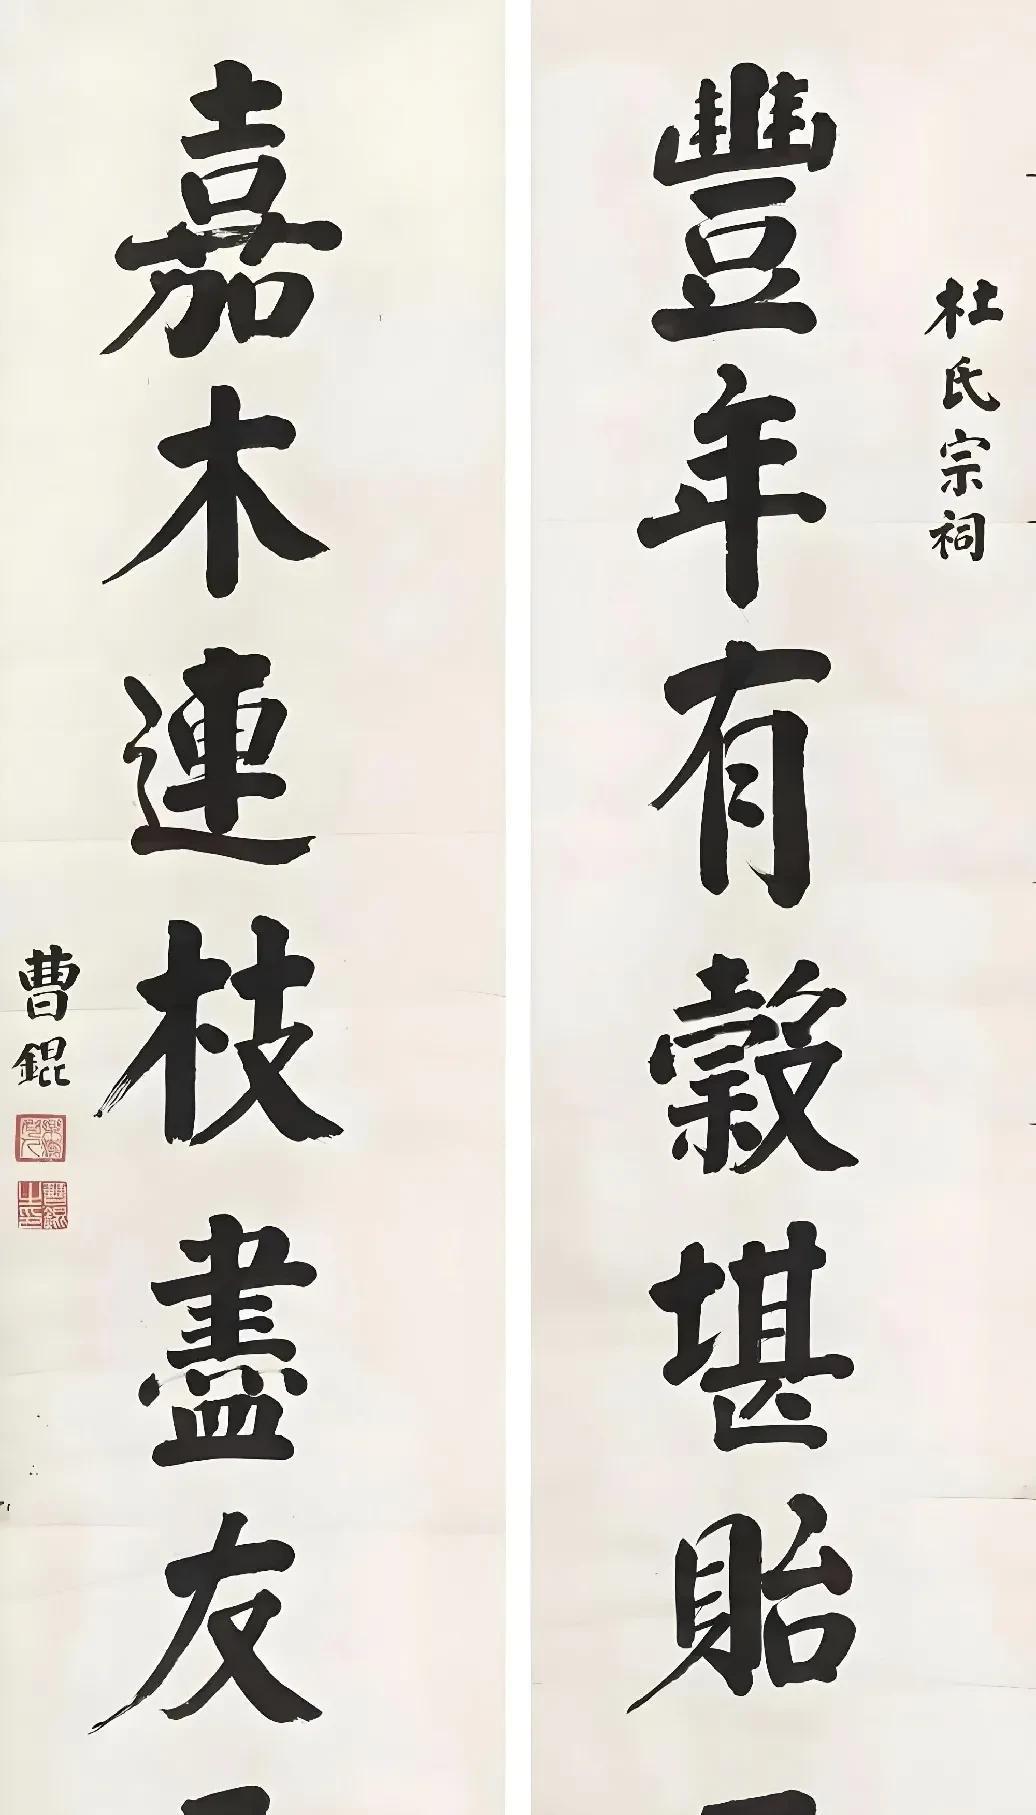 杜氏宗祠
豐年有穀堪貽
嘉木連枝盡友
曹錕